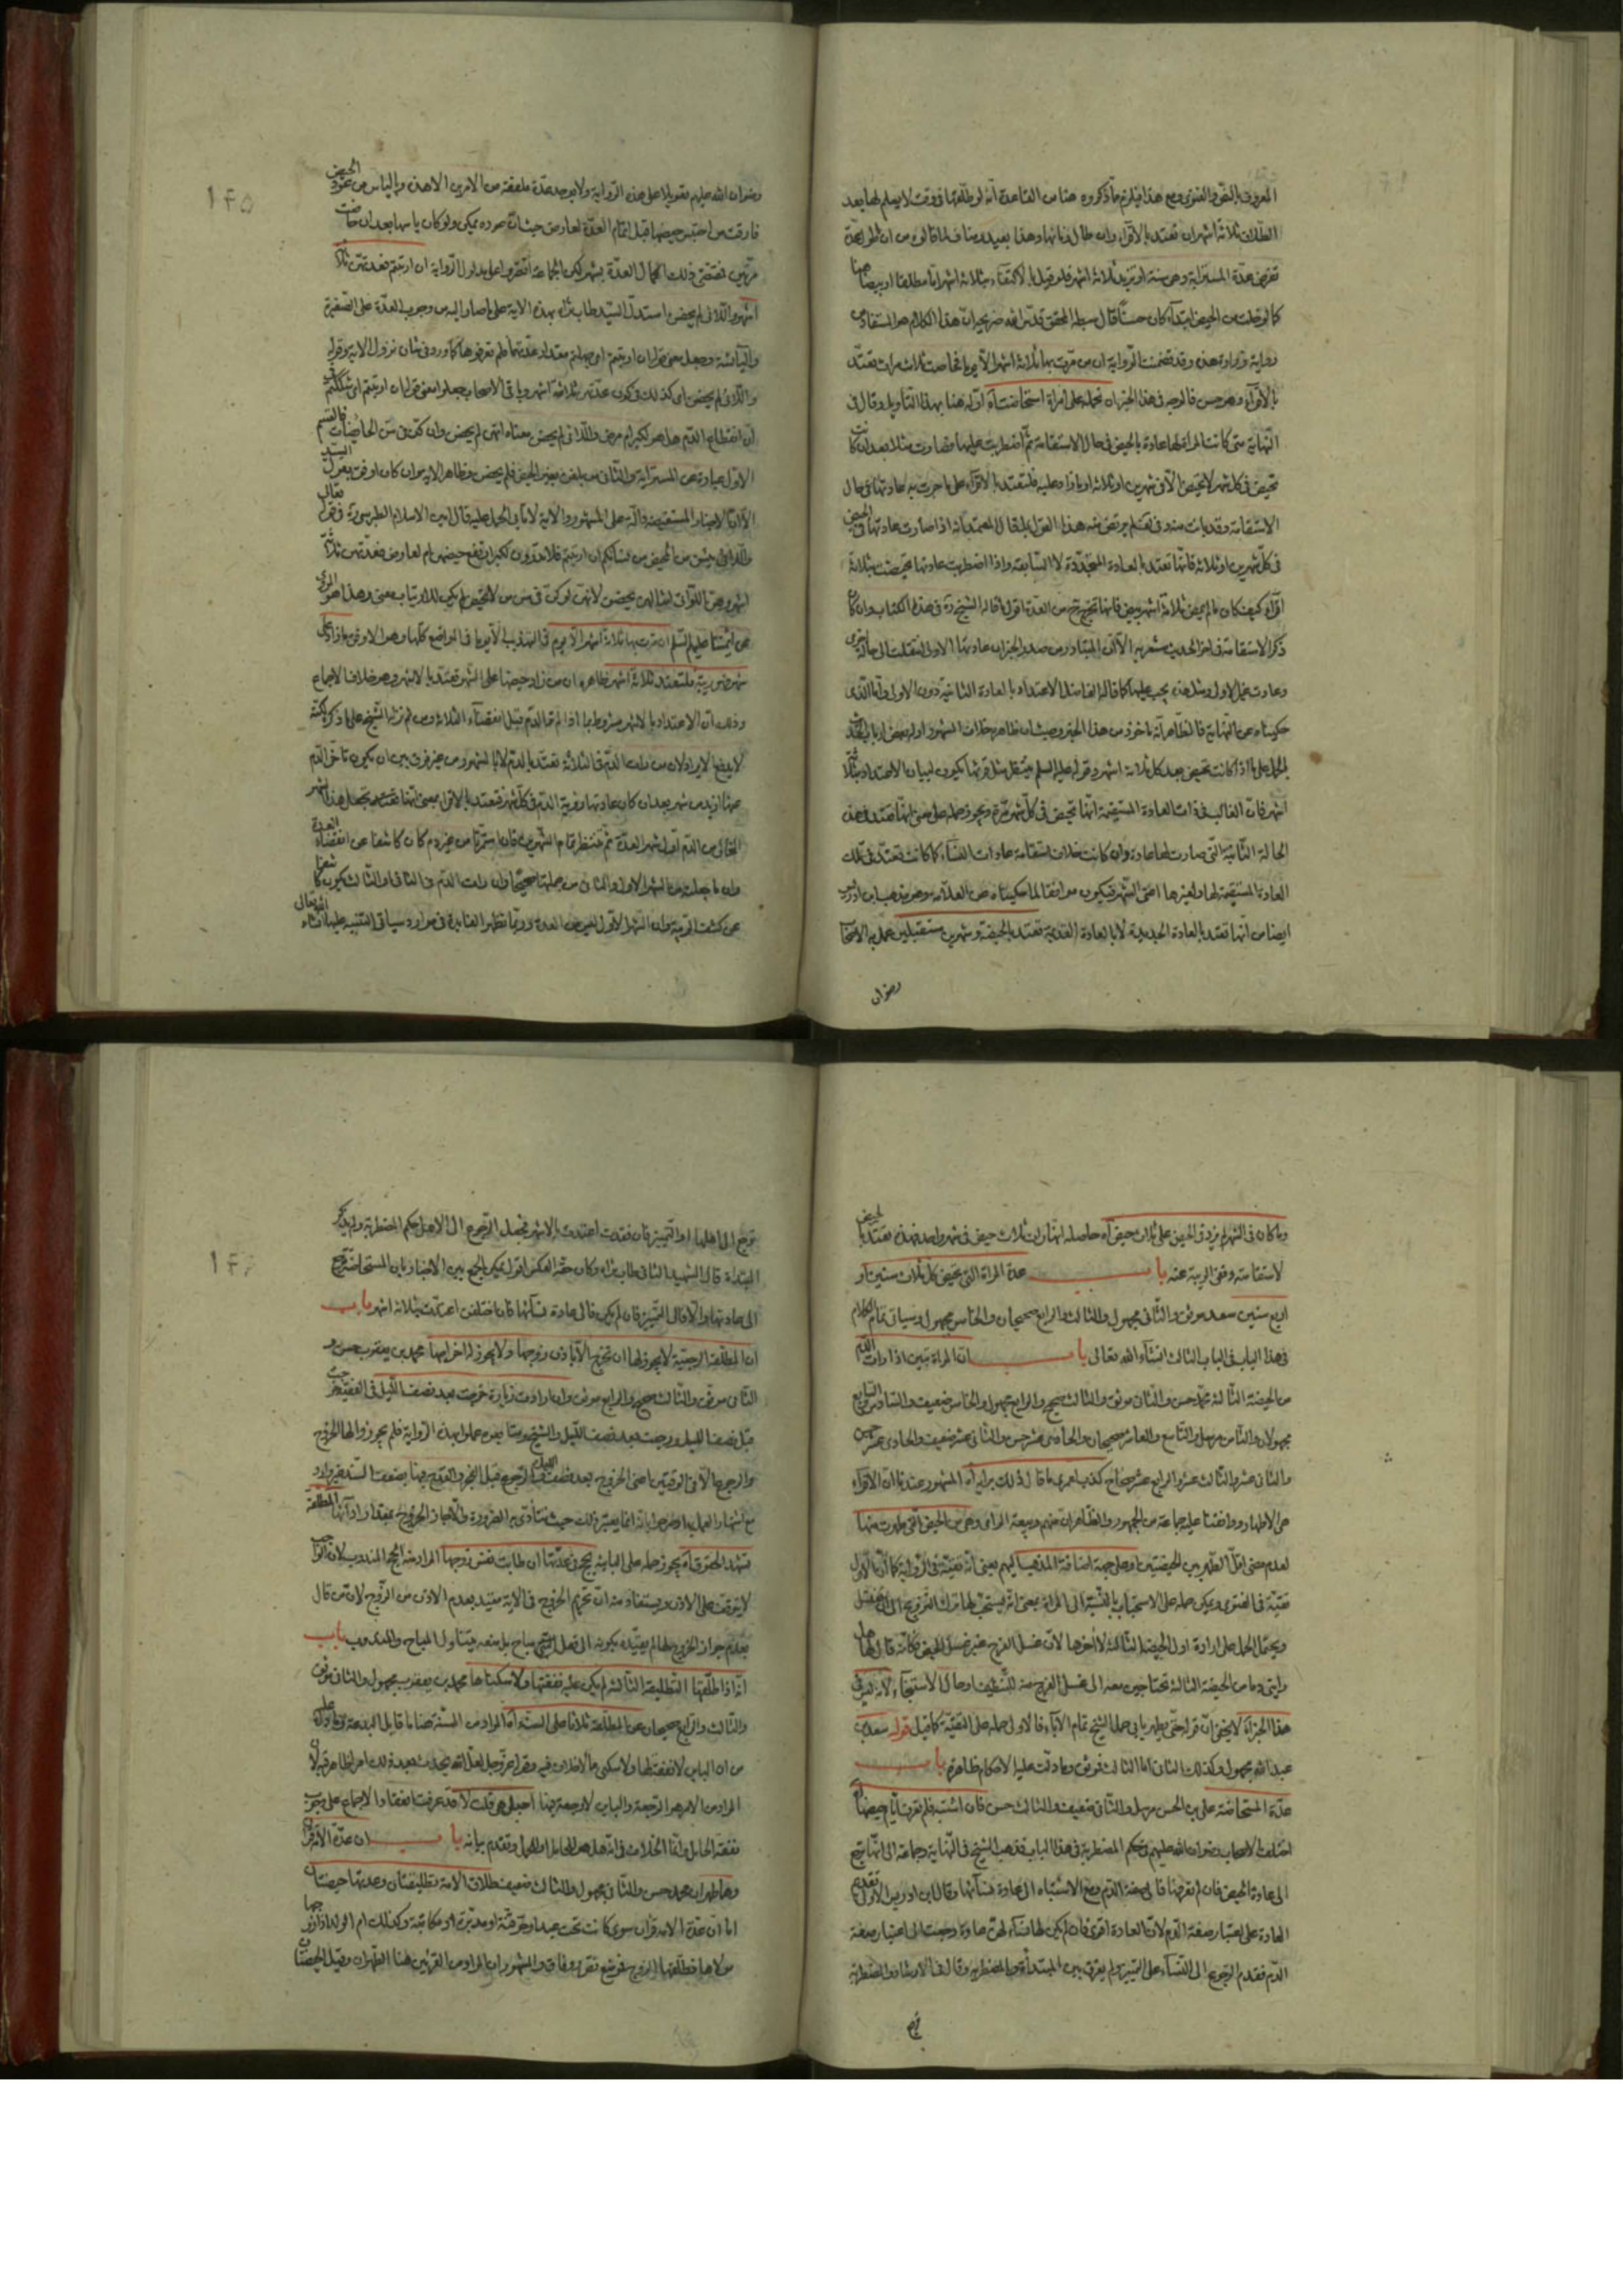 المعروف بالنص والفتوى ومع هذا فيلزم ما ذكروه هنا من القاعدة انه لو طلقها في وقت لا يعلم لها بعد
الطلاق ثلاثة اشهر ان تعتد بالاقراء وان طال زمانها وهذا بعيد
تفرض عدة المسترابة وهي سنة او تزيد ثلاثة اشهر فلو قيل بالاكتفاء بثلاثة اشهر اما مطلقا او بيضا هنا
كما لو خلت من الحيض ابتداء كان حسنا قال سبطه المحقق قدس الله ضريحه ان هذا الكلام هو المستفاد من
رواية زرارة هذه وقد تضمنت الرواية ان من مرت بها ثلاثة اشهر الا يوما فحاضت ثلاث مرات تعتد
بالاقراء وهو حسن فالوجه في هذا الخبر ان نحمله على امراة استحاضت اه اوله هنا بهذا التأويل وقال في
النهاية متى كانت المراة لها عادة بالحيض في حال الاستقامة ثم اضطربت عليها فصارت مثلا بعد ان كانت
تحيض في كل شهر لا تحيض الا في شهرين او ثلاثة او ما زاد عليه فلتعتد بالاقراء على ما جرت به عادتها في حال
الاستقامة
في كل شهرين او ثلاثة فانها تعتد بالعادة المتجددة لا السابقة واذا اضطربت عادتها تحيضت بثلاثة
اقراء كيف كان ما لم يمض ثلاثة اشهر بيض فانها تخرج من العدة اقول ما قاله الشيخ ره في هذا الكتاب وان كان
ذكر الاستقامة في اخر الحديث مشعر به الا ان المتبادر من صدر الخبر ان عادتها الاولى انتقلت الى حالة اخرى
وعادت عمل الاول ومثل هذه يجب عليها كما قاله الفاضل الاعتداد بالعادة الثانية دون الاولى واما الذي
حكيناه عن النهاية فالظاهر انه ماخوذ من هذا الخبر وحيث ان ظاهره خلاف المشهور اوله بعض
لحمله على ما اذا كانت تحيض بعد كل ثلاثة اشهر وقوله عليه السلم ينتظر مثل قرئها يكون لبيان الاعتداد بثلاثة
اشهر فان الغالب في ذات العادة المستقيمة انها تحيض في كل شهر مرة ويجوز حمله على معنى انها تعتد في هذه
الحالة الثانية التي صارت لها عادة وان كانت خلاف استقامة عادات النساء كما كانت تعتد في تلك
العادة المستقيمة لها ولغيرها اعني الشهر فيكون موافقا لما حكيناه عن العلامه وهو مذهب ابن ادريس
ايضا من انها تعتد بالعادة الجديدة لا بالعادة القديمة تعتد بالحيضة وشهرين مستقبلين عمل به الاصحاب
رضوان
١٤٥
رضوان الله عليهم تعويلا على هذه الرواية ولا يوجد عدة ملفقة من الامرين الا هذه والياس من عود الحيض
فارقت من احتبس حيضها قبل اتمام العدة لعارض حيث ان عوده ممكن ولو كان ياسها بعد ان حاضت
مرتين فمقتضى ذلك اكمال العدة بشهر لكن الجماعة اقتصروا على مدلول الرواية ان ارتبتم فعدتهن ثلاثة
اشهر واللائي لم يحضن استدل السيد طاب ثراه بهذه الاية على ما صار اليه من وجوب العدة على الصغيرة
واليائسة وجعل معنى قوله ان ارتبتم اي جهلتم مقدار عدتهما فلم تعرفوها كما ورد في شان نزول الاية وقوله
واللائي لم يحضن اي كذلك في كون عدتهن ثلاثة اشهر وباقي الاصحاب جعلوا معنى قوله ان ارتبتم اي شككتم في
ان انقطاع الدم هل هو لكبر ام مرض واللائي لم يحضن معناه اللتي لم يحضن وان كن في سن الحائضات فالقسم
الاول عبارة عن المسترابة والثاني من بلغن بغير الحيض فلم يحضن وظاهر الاية وان كان اوفق بقول السيد
الا ان الاخبار المستفيضة دالة على المشهور والاية لا تابى الحمل عليه قال امين الاسلام الطبرسي ره في قوله تعالى
واللائي يئسن من المحيض من نسائكم ان ارتبتم فلا تدرون لكبر ارتفع حيضهن ام لعارض فعدتهن ثلاثة
اشهر وهن اللواتي امثالهن يحضن لانهن لو كن في سن من لا تحيض لم يكن للارتياب معنى وهذا هو المروي
عن ائمتنا عليهم السلم ان مرت بها ثلاثة اشهر الا يوم في التهذيب الا يوما في المواضع كلها وهو الاوفق
شهر ضربته فلتعتد ثلاثة اشهر ظاهره ان من زاد حيضها على الشهر تعتد بالاشهر وهو خلاف الاجماع
وذلك ان الاعتداد بالاشهر مشروط بما اذا لم تر الدم قبل انقضاء الثلاثة ومن ثم نزله الشيخ على ما ذكر لكنه
لا يدفع الايراد لان من رات الدم في الثلاثة تعتد بالدم لا بالشهور من غير فرق بين ان يكون تاخر الدم
عنها ازيد من شهر بعد ان كان عادتها رؤية الدم في كل شهر فتعتد بالاقراء بمعنى انها تجعل هذا الشهر
الخالي من الدم اول شهر العدة ثم تنتظر تمام الشهرين فان استمر تا من غير دم كان كاشفا عن انقضاء العدة
وان ما جعلته من الشهر الاول والثاني من جملتها صحيحا وان رات الدم في الثاني او الثالث يكون كاشفا
عن كشف الريبة وان الشهر الاول ليس من العدة وربما تظهر الفايدة في موارد سياتي التنبيه عليها انشاء الله تعالى
وما كان في الشهر لم يزد في الحيض على ثلاث حيض اه حاصله انها رات ثلاث حيض في شهر واحد فهذه تعتد بالحيض
لاستقامته ونفي الريبة عنه باب عدة المراة التي تحيض كل ثلاث سنين او
اربع سنين سعد موثق والثاني مجهول والثالث والرابع صحيحان والخامس مجهول وسياتي تمام الكلام
في هذا الباب في الباب الثالث انشاء الله تعالى باب ان المراة تبين اذا رات الدم
من الحيضة الثالثة محمد حسن والثاني موثق والثالث صحيح والرابع مجهول والخامس ضعيف والسادس والسابع
مجهولان والثامن مرسل والتاسع والعاشر صحيحان والحادي عشر حسن والثاني عشر ضعيف والحادي عشر حسن
والثاني عشر والثالث عشر والرابع عشر صحاح كذب لعمري ما قال ذلك برايه اه المشهور عندنا ان الاقراء
هي الاطهار ووافقنا عليه جماعة من الجمهور والظاهر ان منهم ربيعة الراي وهي من الحيض التي طهرت منها
لعدم مضي اقل الطهر بين الحيضتين وعلى جهة اضافة المذهب اليهم يعني انه تقية في الرواية كما ان الاول
تقية في الفتوى ويمكن حمله على الاستحباب بالنسبة الى المراة بمعنى انه يستحب لها ترك التزويج الى ان تغتسل
ويحتمل الحمل على ارادة اول الحيضة الثالثة لا اخرها لان غسل الفرج غير غسل الحيض فكانه قال لها هل
رايتي دما من الحيضة الثالثة تحتاجين معه الى غسل الفرج منه للتنظيف وحال الاستنجاء لانه ليس في
هذا الخبر اه لا يخفى ان قوله حتى يطهر يابى حمل الشيخ تمام الاباء فالاولى حمله على التقية كما قيل قوله سعد بن
عبد الله مجهول وكذلك الثاني اما الثالث فموثق وما دلت عليه الاحكام ظاهرة باب
عدة المستحاضة علي بن الحسن مرسل والثاني ضعيف والثالث حسن فان اشتبه فلم تعرف ايام حيضها اه
اختلف الاصحاب رضوان الله عليهم في حكم المضطربة في هذا الباب فذهب الشيخ في النهاية وجماعة الى انها ترجع
الى عادة الحيض فان لم تعرفها فالى صفة الدم ومع الاشتباه الى عادة نسائها وقال ابن ادريس الاولى تقديم
العادة على اعتبار صفة الدم لان العادة اقوى فان لم يكن لها نساء لهن عادة رجعت الى اعتبار صفة
الدم فقدم الرجوع الى النساء على التمييز ولم يفرق بين المبتدأة والمضطربة وقال في الارشاد والمضطربة
١٤٦
ترجع الى اهلها او التمييز فان فقدت اعتدت بالاشهر فجعل الرجوع الى الاهل حكم المضطربة ولم يذكر
المبتداة قال الشهيد الثاني طاب ثراه وكان حقه العكس اقول يمكن الجمع بين الاخبار بان المستحاضة ترجع
الى عادتها والا فالى التمييز فان لم يكن فالى عادة نسائها فان اختلفن اعتدت بثلاثة اشهر باب
ان المطلقة الرجعية لا يجوز لها ان تخرج الا باذن زوجها ولا يجوز له اخراجها محمد بن يعقوب حسن و
الثاني موثق والثالث صحيح والرابع موثق وان ارادت زيارة خرجت بعد نصف الليل في الفقيه خرجت
قبل نصف الليل ورجعت بعد نصف الليل والشيخ ومتابعوه عملوا بهذه الرواية فلم يجوزوا لها الخروج
والرجوع الا في الوقتين اعني الخروج بعد نصف الليل والرجوع قبل الفجر
مع اشتهار العمل بها وصرحوا بانه انما يعتبر ذلك حيث تتادى به الضرورة والا جاز الخروج بمقدار ادائها المطلقة
تشهد الحقوق اه يجوز حمله على البائنة تحج في عدتها ان طابت نفس زوجها المراد منه الحج المندوب لان الواجب
لا يتوقف على الاذن ويستفاد منه ان تحريم الخروج في الاية مقيد بعدم الاذن من الزوج لان من قال
بعدم جواز الخروج لها لم يقيده بكونه الى فعل مباح بل منعه يتناول المباح والمندوب باب
انه اذا طلقها التطليقة الثالثة لم يكن عليه نفقتها ولا سكناها محمد بن يعقوب مجهول والثاني موثق
والثالث والرابع صحيحان عن المطلقة ثلاثا على السنة اه المراد من السنة هنا ما قابل البدعة وما دل عليه
من ان الباين لا نفقة لها ولا سكنى مما لا خلاف فيه وقوله عز وجل لعل الله يحدث بعد ذلك امرا ظاهر فيه لان
المراد من الامر هو الرجعة والباين لا رجعة فيها احبلى هي قلت لا قد عرفت انعقاد الاجماع على وجوب
نفقة الحامل وانما الخلاف في انه هل هو للحامل او للحمل وتقدم بيانه باب ان عدة الامة قرءان
وهما طهران محمد حسن والثاني مجهول والثالث ضعيف طلاق الامة تطليقتان وعدتها حيضتان
اما ان عدة الامة قرءان سوى كانت تحت عبد او حر قنة او مدبرة او مكاتبة وكذلك ام الولد اذا زوجها
مولاها فطلقها الزوج فموضع نص ووفاق والمشهور ان المراد من القرئين هنا الطهران وقيل الحيضتان